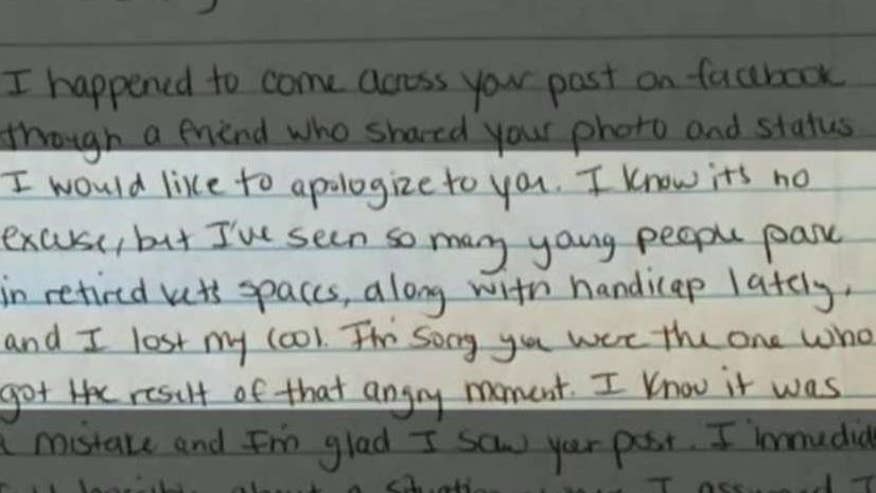 I happened to come across your post on facebook
through a friend who shared your photo and status
I would like to apologize to you. I know it's no
excuse, but I've seen so many young people park
in retired vets spaces, along with handicap lately,
and I lost my cool. I'm sorry you were the one who
got the result of that angry moment. I know it was
a mistake and I'm glad I saw your post. I immedia
about a situation I assumed I